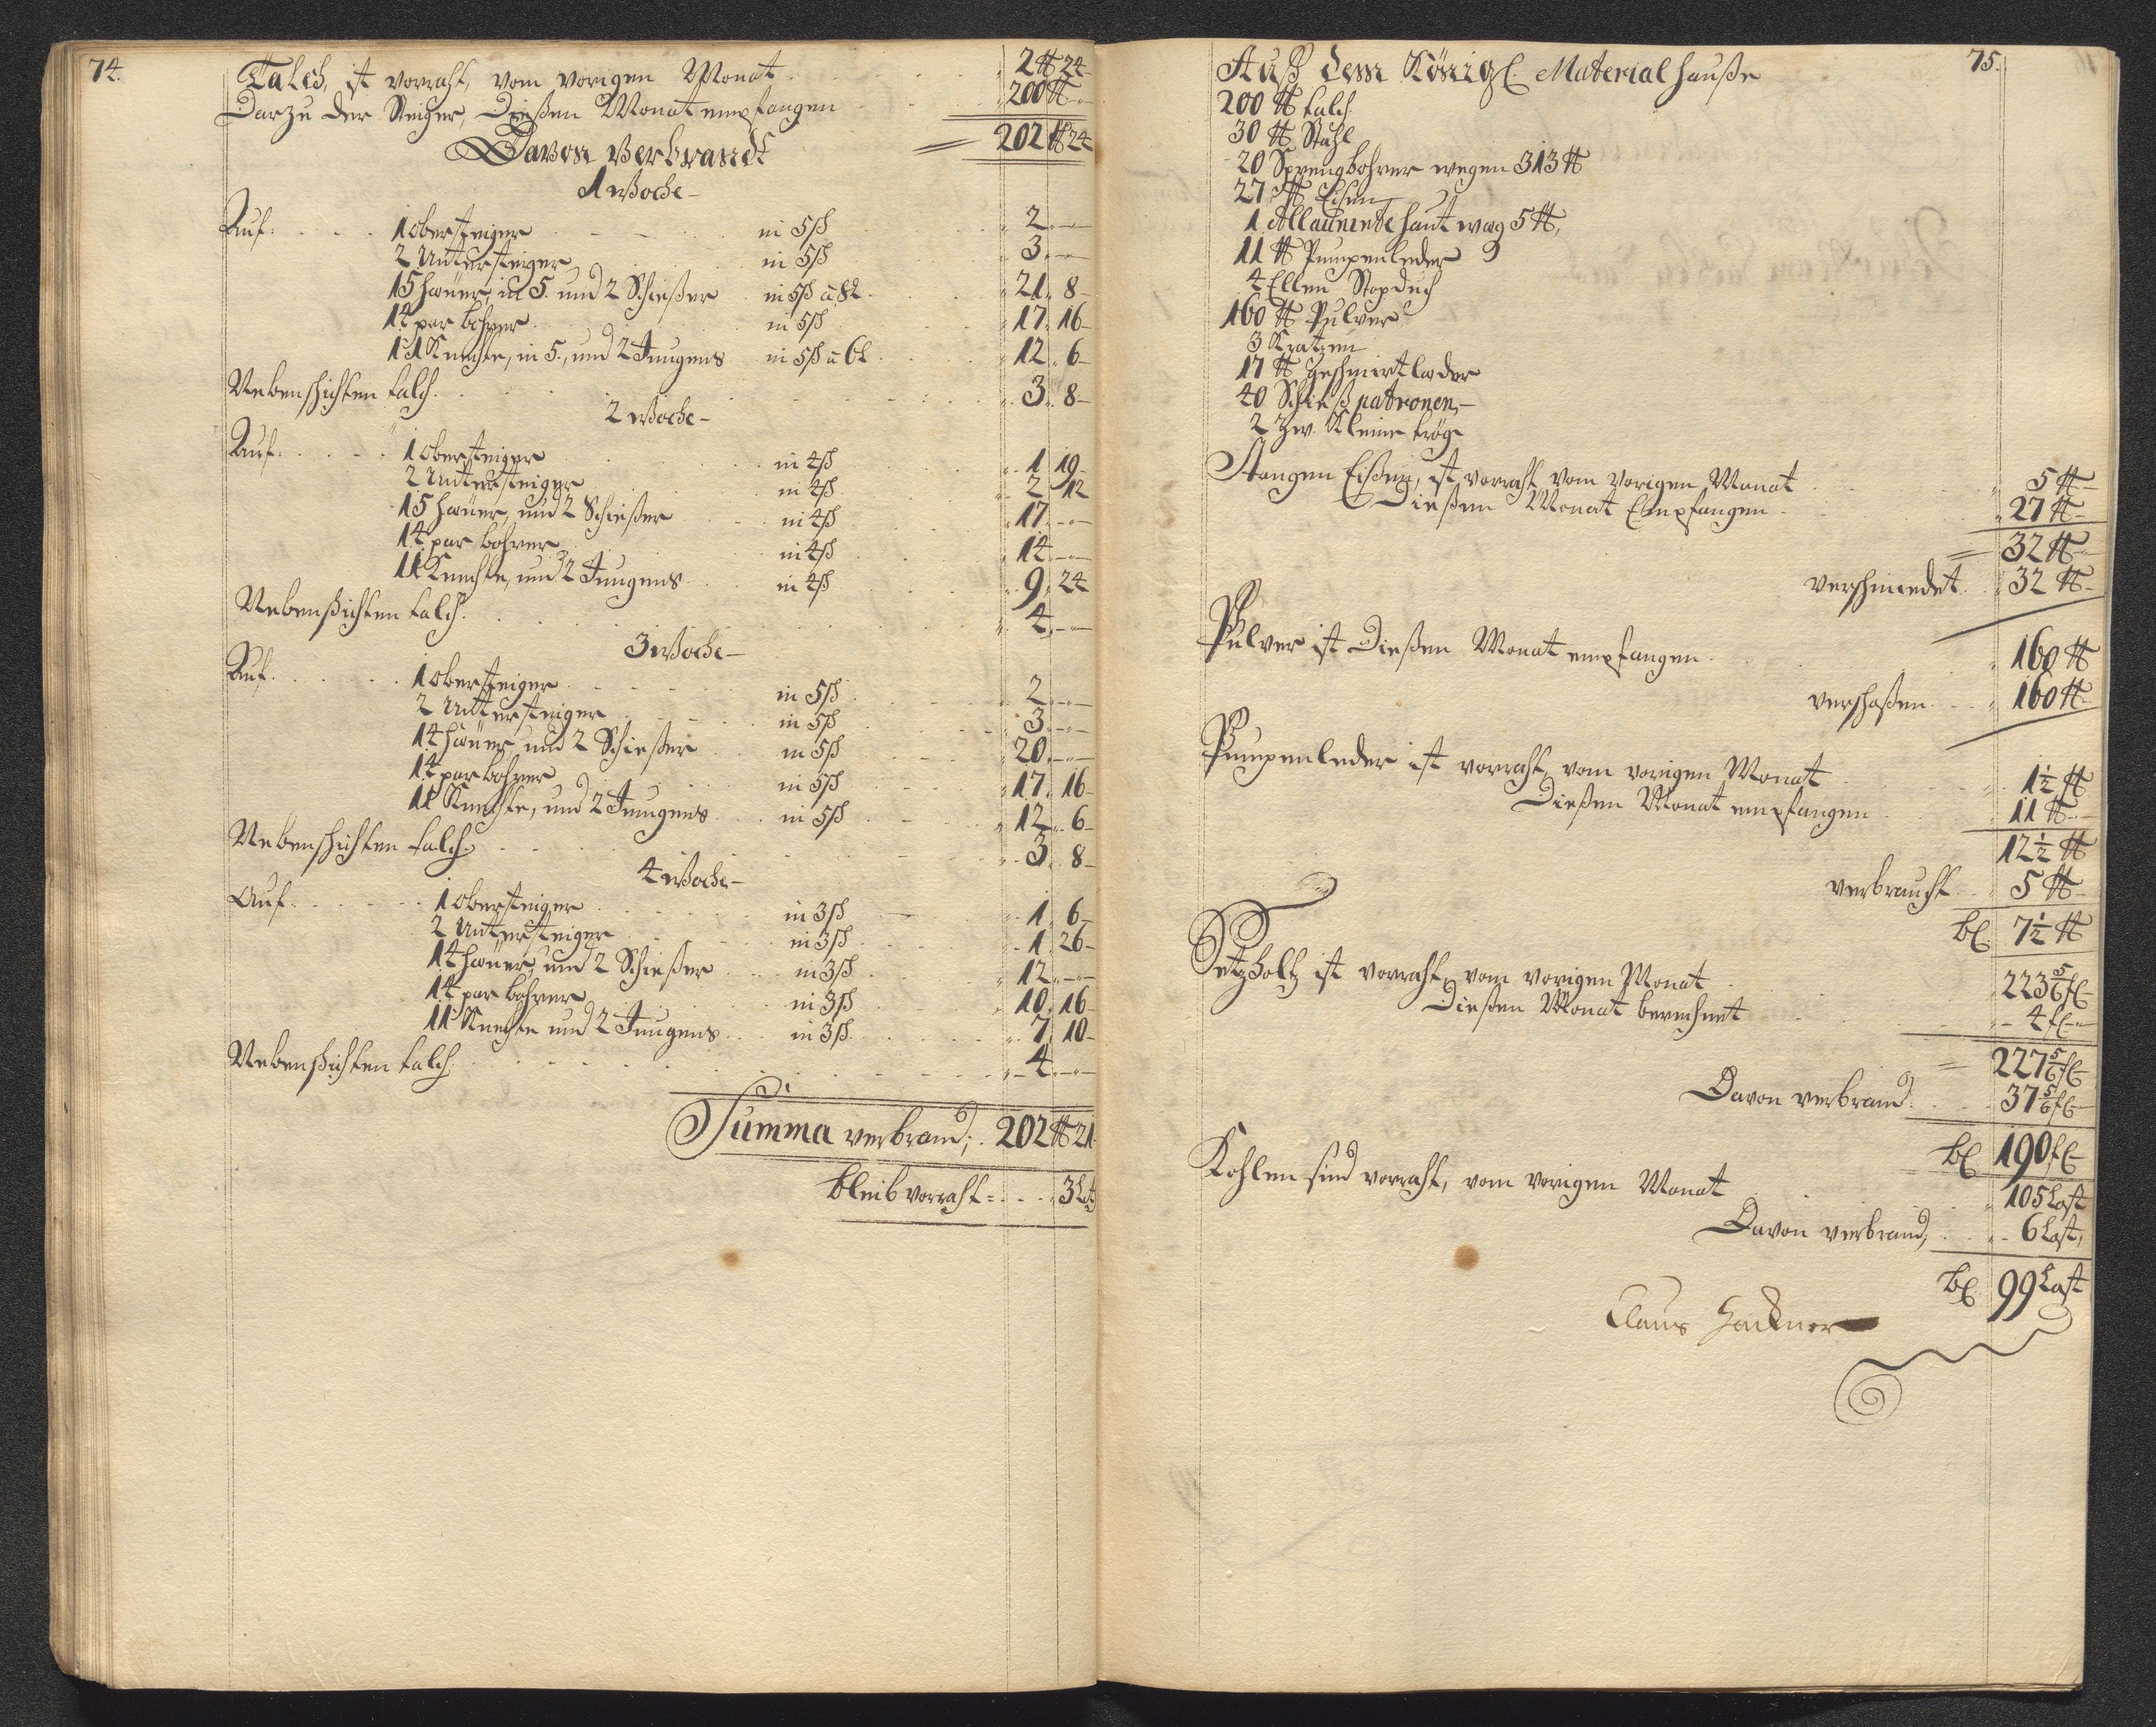 74.
Talch, ist vorraht, vom vorigen Monat . . . 2 ℔ 24
Darzu der Steiger, Dießen Monat empfangen . . . 200 ℔
Davon Verbrandt = 202 ℔ 24
1 Woche
Auf. 1 obersteiger in 5 ß 2 „ —
2 Untersteiger in 5 ß 3 „ —
15 hauer, in 5. und 2 Schießer in 5 ß à 8 l. 21 „ 8
14 par bohrer in 5 ß 17 „ 16
11 Knechte, in 5., und 2 Jungens in 5 ß à 6 l 12 „ 6
Nebenschichten talch. 3 „ 8
2 Woche
Auf. 1 obersteiger in 4 ß 1 19
2 Untersteiger in 4 ß 2 12
15 hauer, und 2 Schießer in 4 ß 17 „ —
14 par bohrer in 4 ß 14 „ —
11 Knechte, und 2 Jungens in 4 ß 9 „ 24
Nebenschichten talch. 4 „ —
3 Woche
Auf. 1 obersteiger in 5 ß 2 „ —
2 Untersteiger in 5 ß 3 „ —
14 hauer, und 2 Schießer in 5 ß 20 „ —
14 par bohrer in 5 ß 17 „ 16
11 Knechte, und 2 Jungens in 5 ß 12 „ 6
Nebenschichten talch. 3 „ 8
4 Woche
Auf. 1 obersteiger in 3 ß 1 „ 6
2 Untersteiger in 3 ß 1 „ 26
14 hauer, und 2 Schießer in 3 ß 12 „ —
14 par bohrer in 3 ß 10 „ 16
11 Knechte und 2 Jungens in 3 ß 7 „ 10
Nebenschichten talch. 4 „ —
Summa verbrand; 202 ℔ 21
bleib vorraht = 3 Lot
75.
Auß dem Königl. Materialhauße
200 ℔ talch
30 ℔ Stahl
20 Sprengbohrer wegen 313 ℔
27 ℔ Eisen
1 haut wag 5 ℔,
11 ℔ Pumpenleder
4 Ellen Stopduch
160 ℔ Pulver
3 Kratzen
17 ℔ geschmirt leder
40 Schießpatronen,
2 Zw. Kleine trög
Stangen Eißen, ist vorraht vom vorigen Monat 5 ℔
Dießen Monat Empfangen 27 ℔
= 32 ℔
verschmiedet 32 ℔
Pulver ist Dießen Monat empfangen 160 ℔
verschoßen 160 ℔
Pumpenleder ist vorraht, vom vorigen Monat 1½ ℔
Dießen Monat empfangen 11 ℔
12½ ℔
verbraucht 5 ℔
bl 7½ ℔
Setzholtz ist vorraht, vom vorigen Monat 223 5/6 fl
Dießen Monat berechnet 4 fl
= 227 5/6 fl
Davon verbrand 37 5/6 fl
bl 190 fl
Kohlen sind vorraht, vom vorigen Monat 105 Last
Davon verbrand, 6 Last,
bl 99 Last
Claus